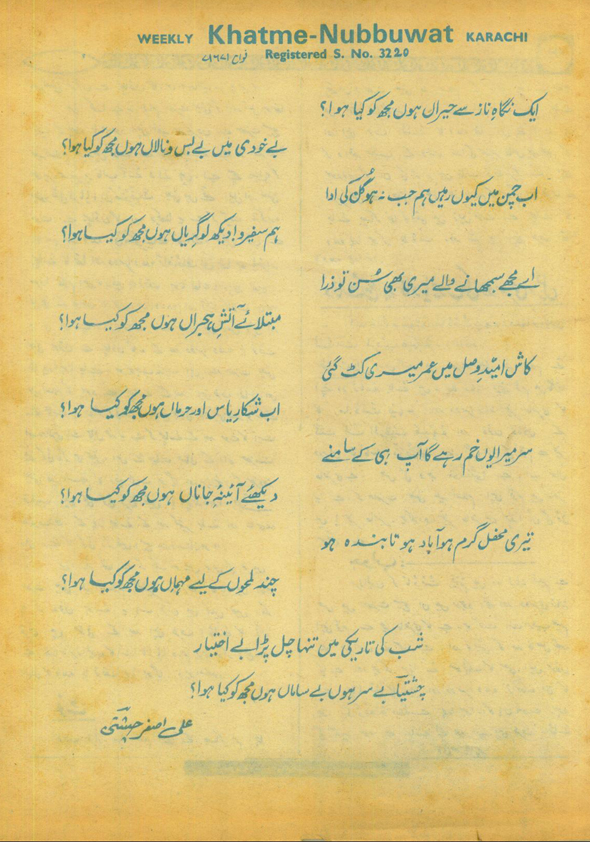 WEEKLY Khatme-Nubbuwat KARACHI
Registered S. No. 3220
ایک نگاہِ ناز سے حیراں ہوں مجھ کو کیا ہوا؟
بے خودی میں بے بس و نالاں ہوں مجھ کو کیا ہوا؟
اب چمن میں کیوں رہیں ہم جب نہ ہو گُل کی ادا
ہم سفیرو! دیکھ لو گریاں ہوں مجھ کو کیا ہوا؟
اے مجھے سمجھانے والے میری بھی سُن تو ذرا
مبتلائے آتشِ ہجراں ہوں مجھ کو کیا ہوا؟
کاش امیدِ وصل میں عمر میری کٹ گئی
اب شکارِ یاس اور حرماں ہوں مجھ کو کیا ہوا؟
سر میرا یوں خم رہے گا آپ ہی کے سامنے
دیکھئے آئینۂ جاناں ہوں مجھ کو کیا ہوا؟
تیری محفل گرم ہو آباد ہو تابندہ ہو
چند لمحوں کے لیے مہماں ہوں مجھ کو کیا ہوا؟
شب کی تاریکی میں تنہا چل پڑا بے اختیار
چشتیاؔ بے سر ہوں بے ساماں ہوں مجھ کو کیا ہوا؟
علی اصغر چشتیؔ